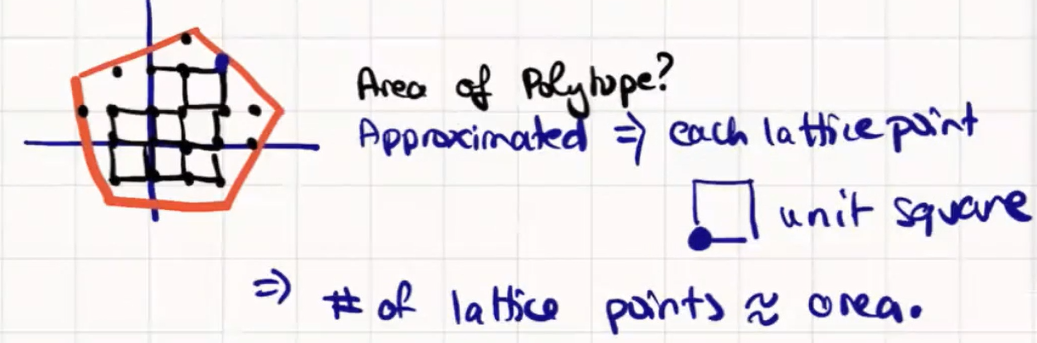 Area of Polytope?
Approximated ⇒ each lattice point
unit square
⇒ # of lattice points ≈ area.